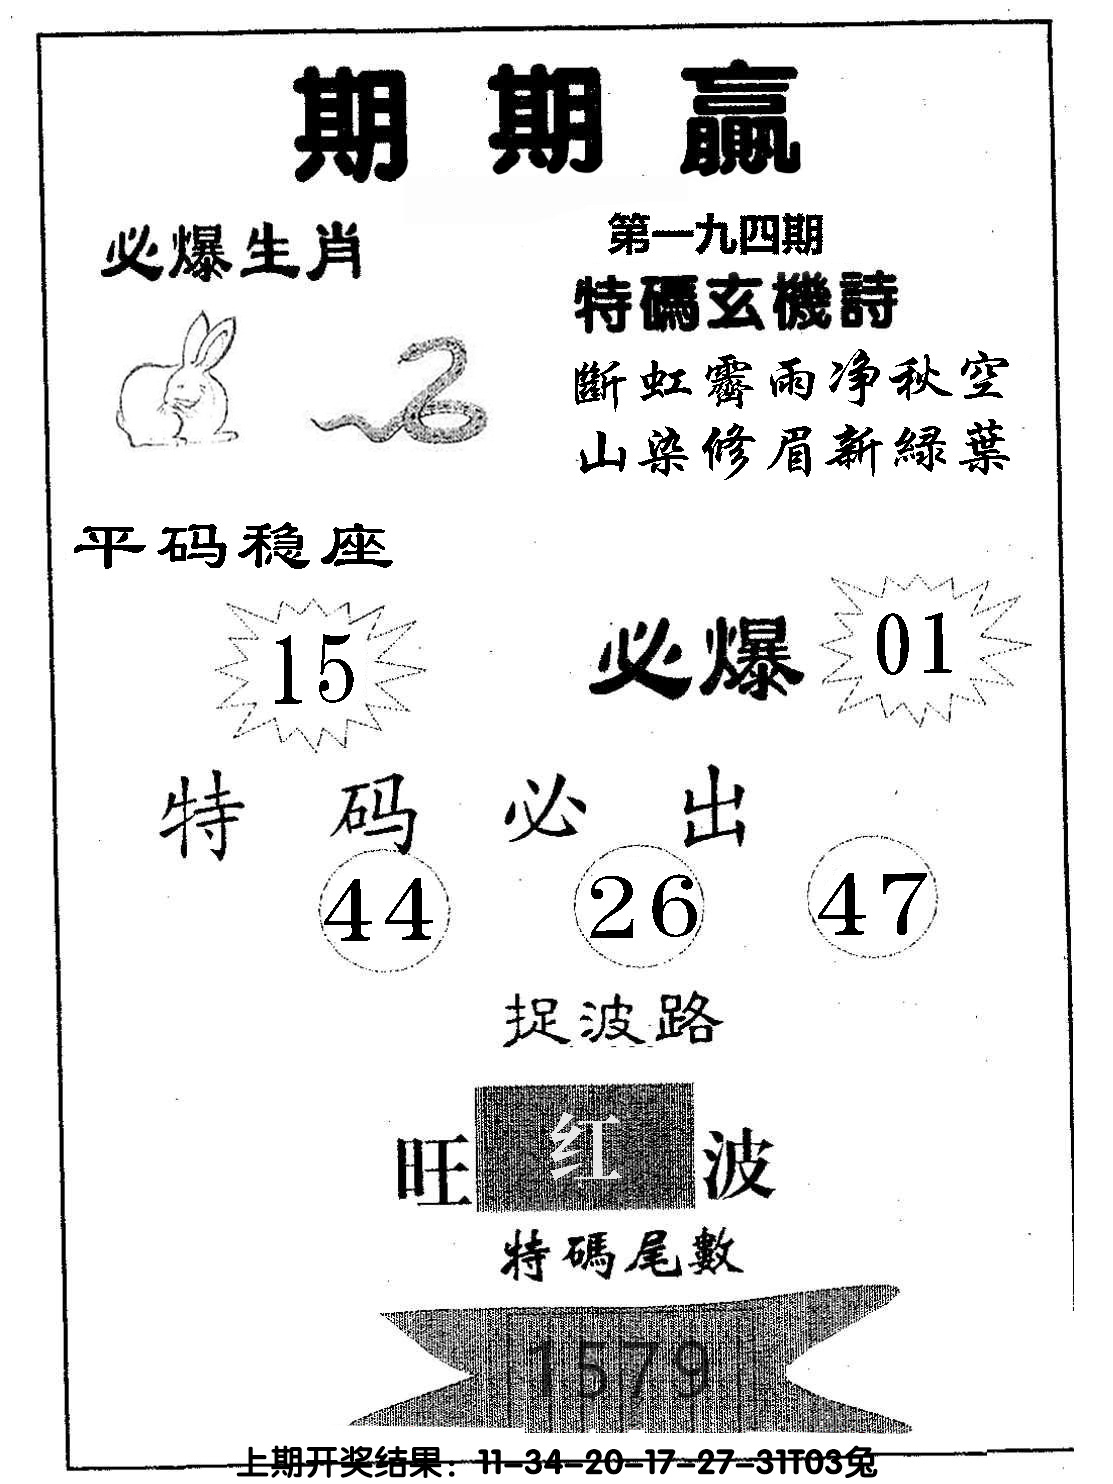 期期赢
必爆生肖
第一九四期
特碼玄機詩
斷虹霽雨净秋空
山染修眉新緑葉
平码稳座
15
必爆
01
特码必出
44 26 47
捉波路
旺红波
特碼尾數
1579
上期开奖结果：11-34-20-17-27-31T03兔